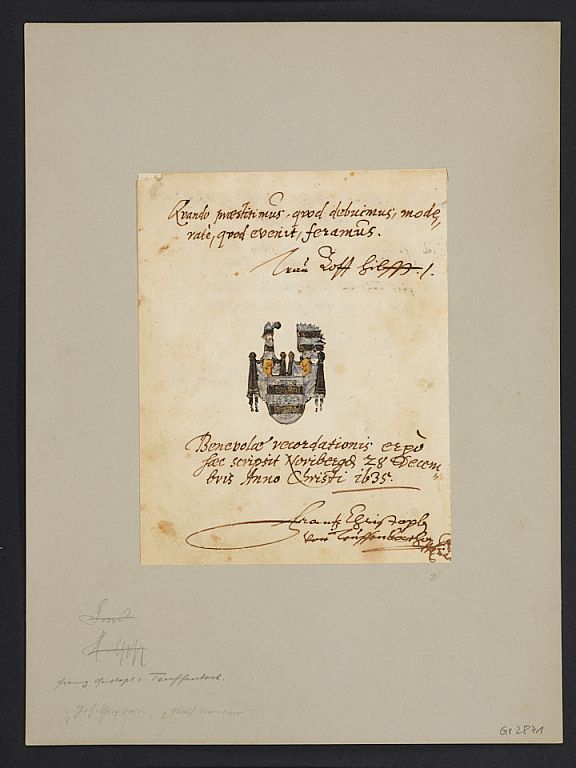 Quando præstitimus, quod debuimus, mode,,
ratè, quod evenit, feramus.
Trau Gott hilfft
Benevolæ recordationis ergò
hæc scripsit Noribergæ 28 Decem,,
bris Anno Christi 1635.
Frantz Christoph
von Teuffenbach
Franz Christoph v. Teuffenbach.
Gs 2871